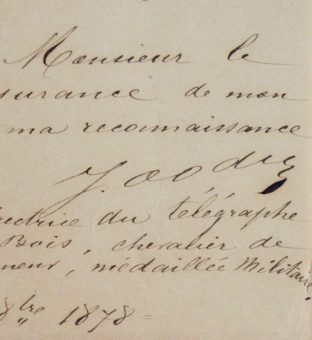 Monsieur le
surance de mon
ma reconnaissance
J. Dodu
ectrice du télégraphe
Bois, chevalier de
neur, médaillée Militaire,
8bre 1878